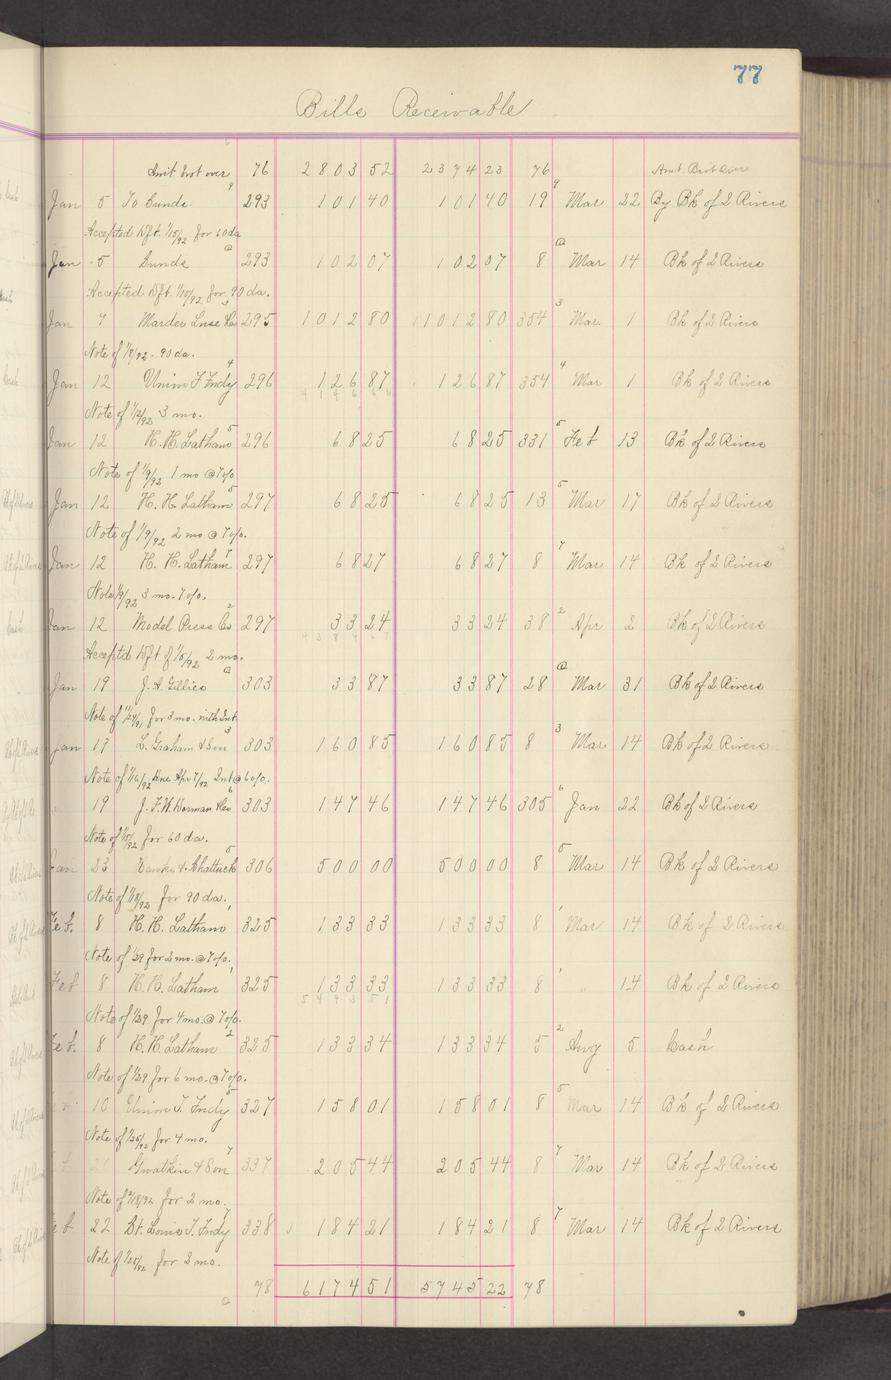 77
Bills Receivable
Amt Brot over 76 2803 52 2374 23 76 Amt. Brot Over
Jan 5 To Sunds. 293 101 40 101 40 19 Mar 22 By Bk of 2 Rivers
Accepted Dft. 1/5/92 for 60 da
Jan 5 Sunds 293 102 07 102 07 8 Mar 14 Bk of 2 Rivers
Accepted Dft. 1/10/92 for 90 da.
Jan 7 Marder Luse Co 295 1012 80 1012 80 354 Mar 1 Bk of 2 Rivers
Note of 1/7/92 - 90 da.
Jan 12 Union T. Fndy 296 126 87 126 87 354 Mar 1 Bk of 2 Rivers
Note of 1/2/92 3 mo.
Jan 12 H. H. Latham 296 68 25 68 25 331 Feb 13 Bk of 2 Rivers
Note of 1/9/92 1 mo @ 7%
Jan 12 H. H. Latham 297 68 25 68 25 13 Mar 17 Bk of 2 Rivers
Note of 1/9/92 2 mo @ 7%.
Jan 12 H. H. Latham 297 68 27 68 27 8 Mar 14 Bk of 2 Rivers
Note 1/9/92 3 mo. 7%.
Jan 12 Model Press Co 297 33 24 33 24 38 Apr 2 Bk of 2 Rivers
Accepted Dft of 1/5/92 2 mo.
Jan 19 J. A. Gillies 303 33 87 33 87 28 Mar 31 Bk of 2 Rivers
Note of for 3 mo. with Int.
Jan 17 L. Graham & Son 303 160 85 160 85 8 Mar 14 Bk of 2 Rivers
Note of 1/16/92 Due Apr 7/92 Int @ 6%.
19 J. F. W. Dorman Co 303 147 46 147 46 305 Jan 22 Bk of 2 Rivers
Note of for 60 da.
Jan 23 & Shattuck 306 500 00 500 00 8 Mar 14 Bk of 2 Rivers
Note of 1/18/92 for 90 da.
Feb. 8 H. H. Latham 325 133 33 133 33 8 Mar 14 Bk of 2 Rivers
Note of 1/29 for 2 mo. @ 7%.
Feb 8 H. H. Latham 325 133 33 133 33 8 " 14 Bk of 2 Rivers
Note of 1/29 for 4 mo. @ 7%.
Feb. 8 H. H. Latham 325 133 34 133 34 5 Aug 5 Cash
Note of 1/29 for 6 mo. @ 7%.
10 Union T. Fndy 327 158 01 158 01 8 Mar 14 Bk of 2 Rivers
Note of 1/26/92 for 4 mo.
Gwatkin & Son 337 205 44 205 44 8 Mar 14 Bk of 2 Rivers
Note of 2/18/92 for 2 mo.
Feb 22 St. Louis T. Fndy 338 184 21 184 21 8 Mar 14 Bk of 2 Rivers
Note of 1/25/92 for 2 mo.
78 6174 51 5745 22 78